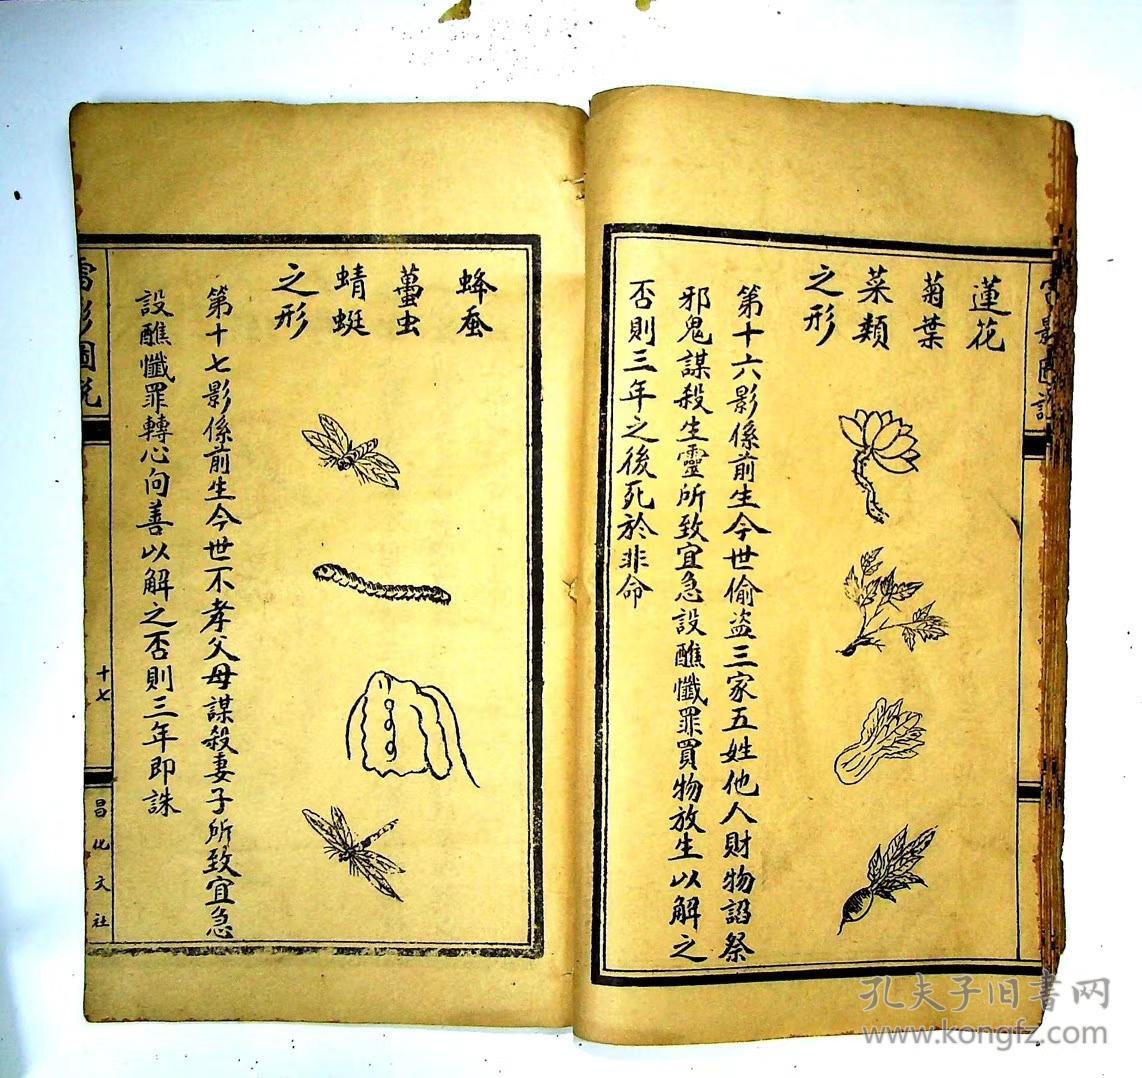 蓮花
菊葉
菜類
之形
第十六影係前生今世偷盜三家五姓他人財物謟祭
邪鬼謀殺生靈所致宜急設醮懺罪買物放生以解之
否則三年之後死於非命
蜂蚕
蠆虫
蜻蜓
之形
第十七影係前生今世不孝父母謀殺妻子所致宜急
設醮懺罪轉心向善以解之否則三年即誅
雷影圖説
十七
昌化文社
孔夫子旧书网
www.kongfz.com